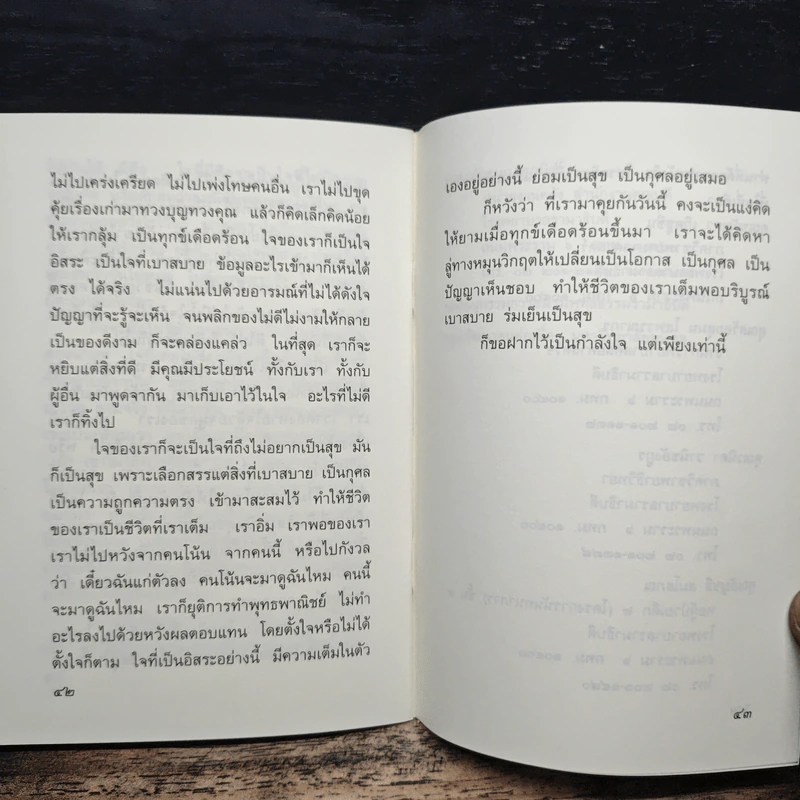 ไม่ไปเคร่งเครียด ไม่ไปเพ่งโทษคนอื่น เราไม่ไปขุด
คุ้ยเรื่องเก่ามาทวงบุญทวงคุณ แล้วก็คิดเล็กคิดน้อย
ให้เรากลุ้ม เป็นทุกข์เดือดร้อน ใจของเราก็เป็นใจ
อิสระ เป็นใจที่เบาสบาย ข้อมูลอะไรเข้ามาก็เห็นได้
ตรง ได้จริง ไม่แน่นไปด้วยอารมณ์ที่ไม่ได้ดังใจ
ปัญญาที่จะรู้จะเห็น จนพลิกของไม่ดีไม่งามให้กลาย
เป็นของดีงาม ก็จะคล่องแคล่ว ในที่สุด เราก็จะ
หยิบแต่สิ่งที่ดี มีคุณมีประโยชน์ ทั้งกับเรา ทั้งกับ
ผู้อื่น มาพูดจากัน มาเก็บเอาไว้ในใจ อะไรที่ไม่ดี
เราก็ทิ้งไป
ใจของเราก็จะเป็นใจที่ถึงไม่อยากเป็นสุข มัน
ก็เป็นสุข เพราะเลือกสรรแต่สิ่งที่เบาสบาย เป็นกุศล
เป็นความถูกความตรง เข้ามาสะสมไว้ ทำให้ชีวิต
ของเราเป็นชีวิตที่เราเต็ม เราอิ่ม เราพอของเรา
เราไม่ไปหวังจากคนโน้น จากคนนี้ หรือไปกังวล
ว่า เดี๋ยวฉันแก่ตัวลง คนโน้นจะมาดูฉันไหม คนนี้
จะมาดูฉันไหม เราก็ยุติการทำพุทธพาณิชย์ ไม่ทำ
อะไรลงไปด้วยหวังผลตอบแทน โดยตั้งใจหรือไม่ได้
ตั้งใจก็ตาม ใจที่เป็นอิสระอย่างนี้ มีความเต็มในตัว
๔๒
เองอยู่อย่างนี้ ย่อมเป็นสุข เป็นกุศลอยู่เสมอ
ก็หวังว่า ที่เรามาคุยกันวันนี้ คงจะเป็นแง่คิด
ให้ยามเมื่อทุกข์เดือดร้อนขึ้นมา เราจะได้คิดหา
ลู่ทางหมุนวิกฤตให้เปลี่ยนเป็นโอกาส เป็นกุศล เป็น
ปัญญาเห็นชอบ ทำให้ชีวิตของเราเต็มพอบริบูรณ์
เบาสบาย ร่มเย็นเป็นสุข
ก็ขอฝากไว้เป็นกำลังใจ แต่เพียงเท่านี้
๔๓